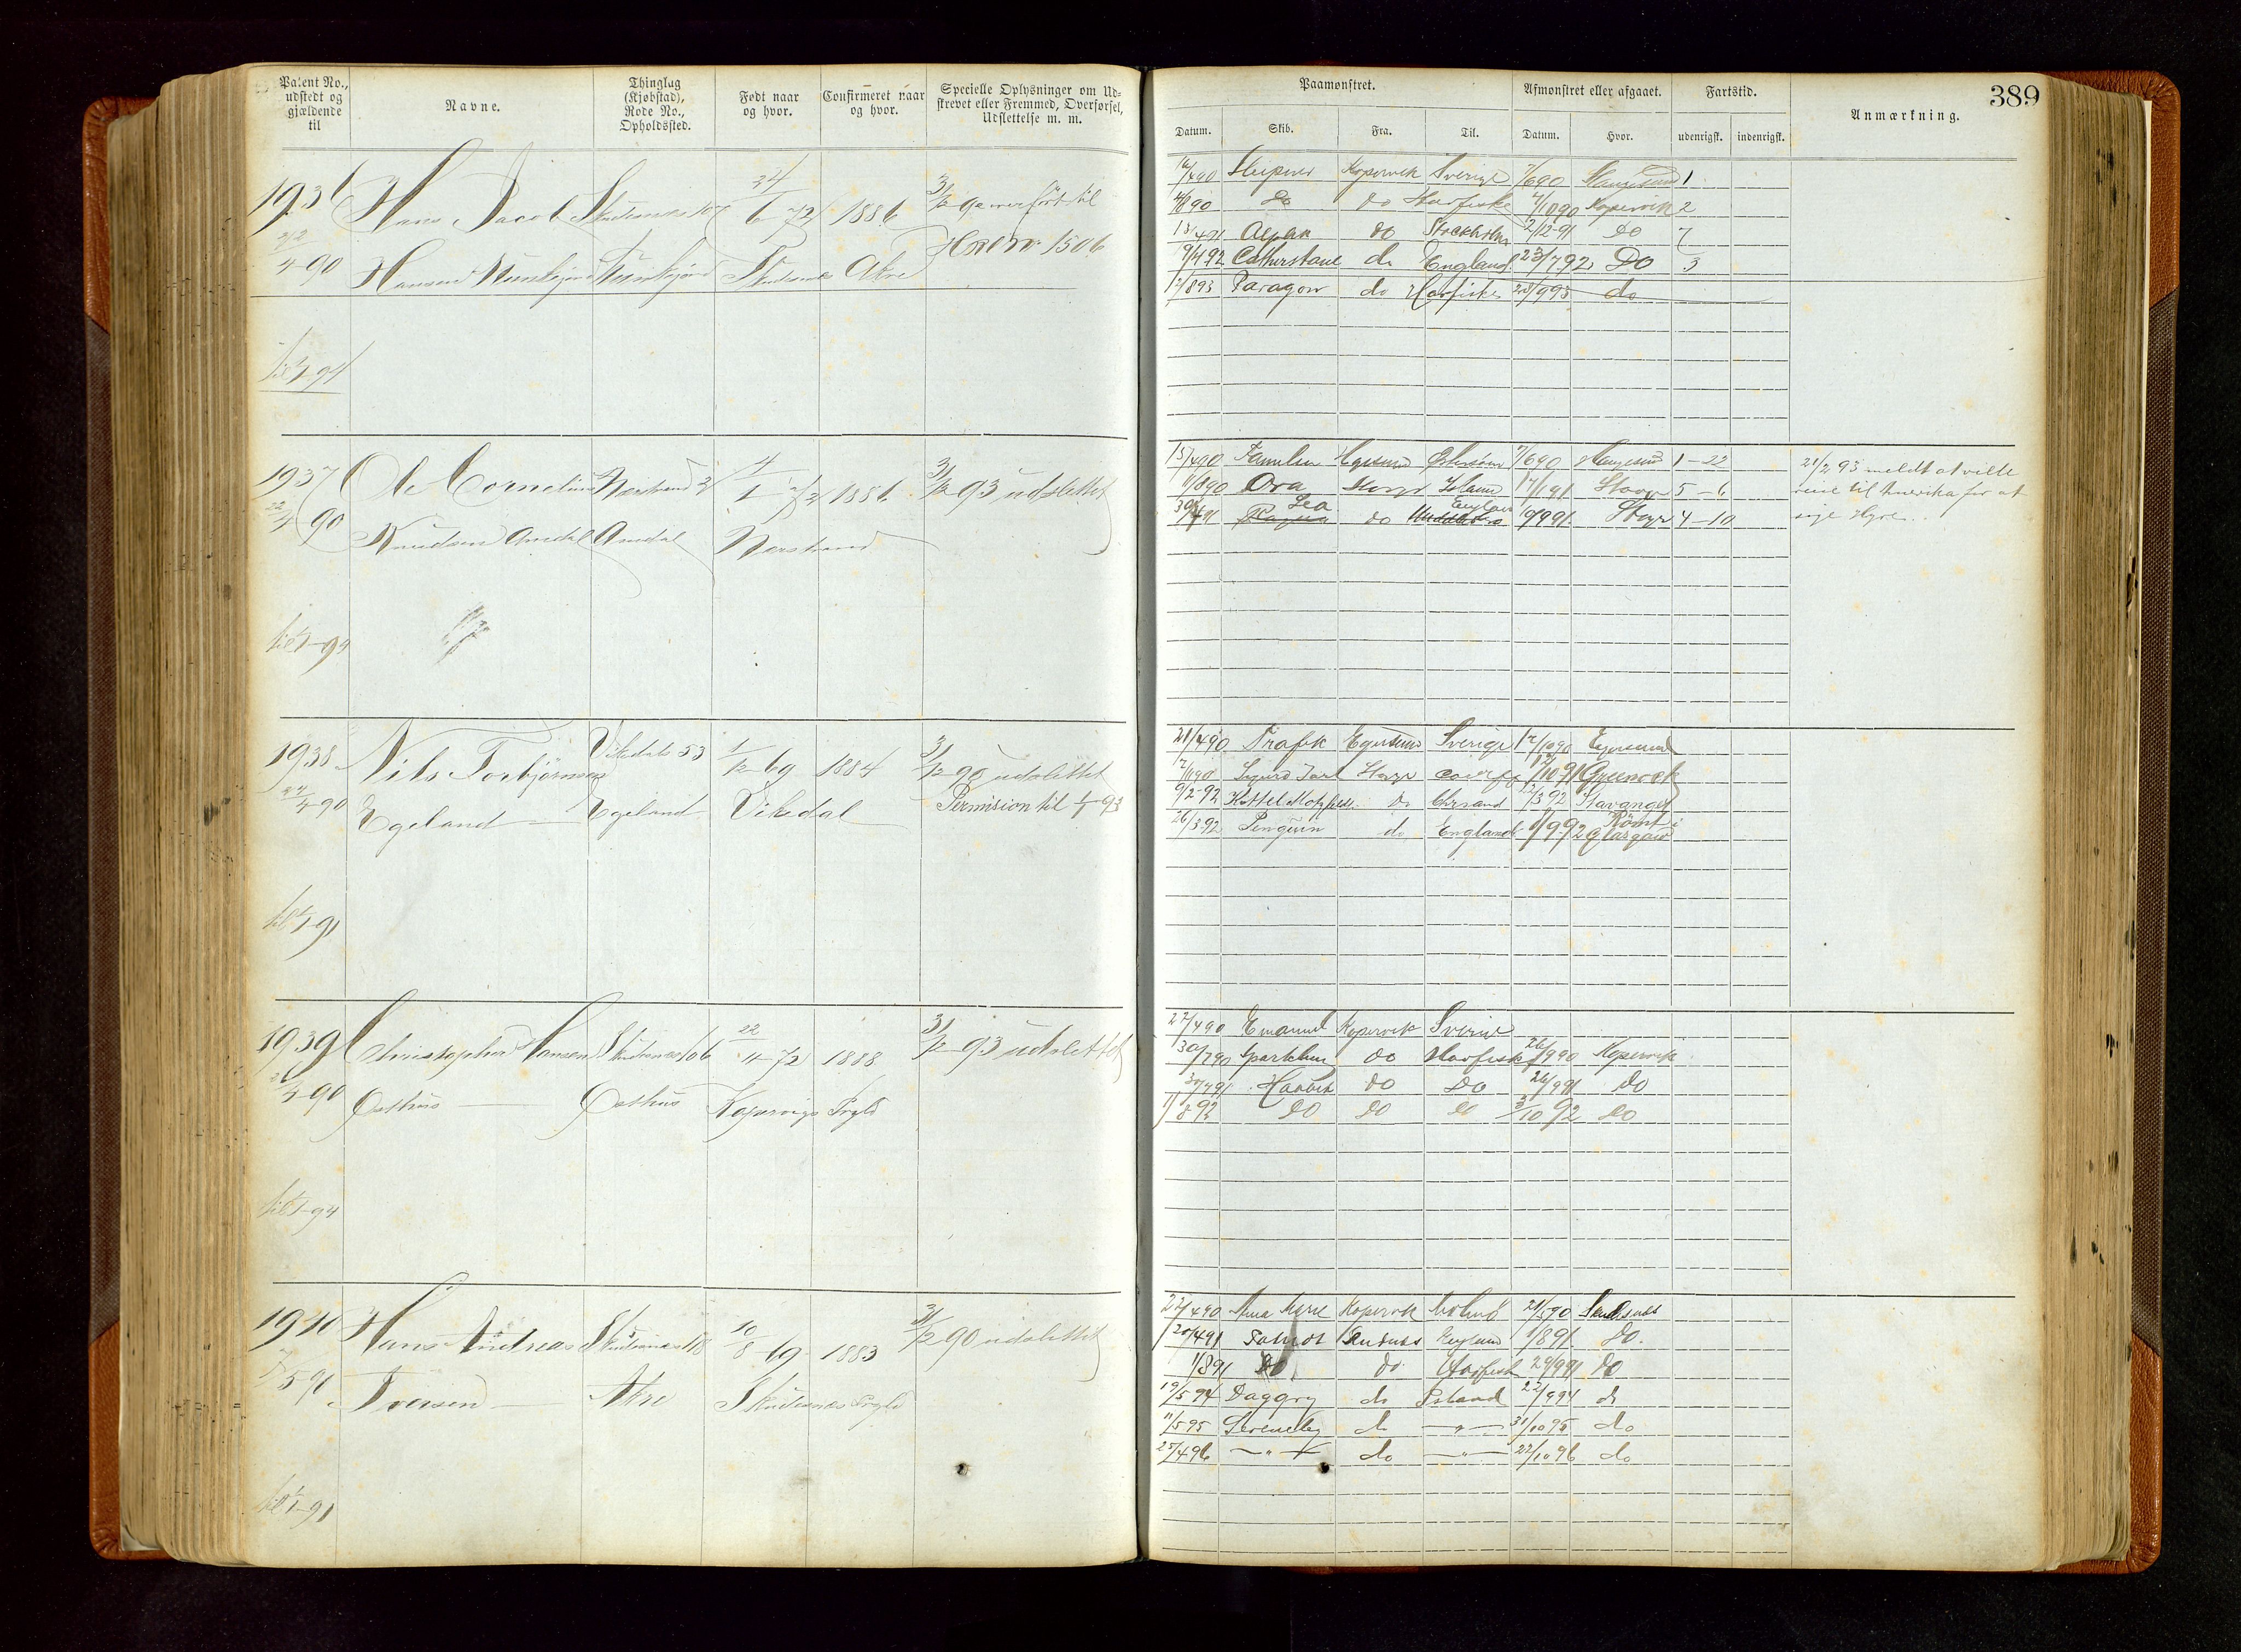 Patent No., udstedt og gjældende til
Navne.
Thinglag (Kjøbstad), Rode No., Opholdssted.
Født naar og hvor.
Confirmeret naar og hvor.
Specielle Oplysninger om Udskrevet eller Fremmed, Overførsel, Udslettelse m. m.
1936 Hans Jacob Skudesnæs 107 24/6 72 1886 31/12 92 overført til
22/4-90 Hansen Skudesnæs Akre Hoved nr 1506
til 1/1-94
1937 Ole Cornelius Nærstrand 2 1886 31/12 93 udslettet
22/4 90 Knudsen Amdal Amdal Nærstrand
til 1/1-94
1938 Nils Torbjørnsen Vikedal 53 1/12 69 1884 31/12 90 udslettet
4-90 Egeland Egeland Vikedal Permision til 1/1-93
til 1/1-91
1939 Christopher Hansen Skudesnæs 106 22/4-72 1888 31/12-93 udslettet
4-90 Østhus Østhus Kopervigs Prgld
til 1/1-94
1940 Hans Andreas Skudesnæs 118 10/8-69 1883 31/12 90 udslettet
5 90 Iversen Akre Skudesnæs Prgld
til 1/1-91
389
Paamønstret.
Afmønstret eller afgaaet.
Fartstid.
Anmærkning.
Datum. Skib. Fra. Til. Datum. Hvor. udenrigsk. indenrigsk.
16/4 90 Sleipner Kopervik Sverige 7/6 90 Haugesund 1
4/8 90 do do Havfiske 4/10 90 Kopervik 2
13/4 91 Alpha do Stockholm 2/12-91 do 7
9/4 92 do England 23/7 92 Do 3
1/8 93 Paragon do Havfiske 28/9 93 do
15/4 90 Familien Hgesund Østersøen 7/6 90 Haugesund 1-22
Ora Island 17/1 91 5-6
Lea do England 10/9 91 4-10
21/2 93 meldt at ville
reise til Amerika for at
søge Hyre.
21/4 90 Trafik Egersund Sverige 12/10 90 Egersund
Sigurd Jarl 10 91 Greenock
9/2-92 do Chrsand 12/3 92 Stavanger
26/3 92 Penguin do England 1/9 92 Rømt i Glasgow
22/4 90 Emanuel Kopervik Sverige
30/7 90 do Havfiske 26/9 90 Kopervik
30/7 91 do Do 26/9 91 Do
1/8 92 Do do do 3/10 92 do
22/4 90 Ana Marie Kopervik 21/5 90
20/4 91 England 1/8 91 Do.
1/8 91 Do do Havfisk 29/9 91 Do
19/5 94 Daggry do Island 22/9 94 do
11/5 95 do — " — 31/10 95 do
25/4 96 — " — do — " — 22/10 96 do